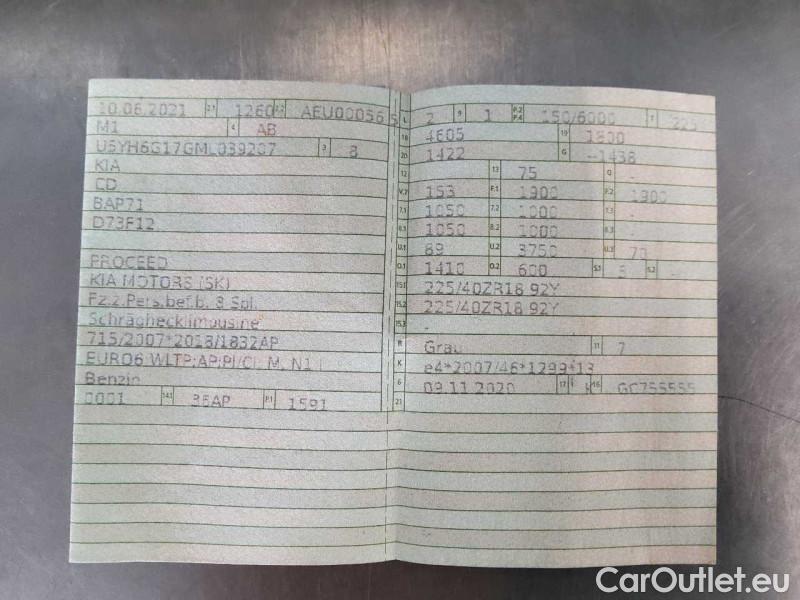 10.06.2021 2.1 1260 2.2 AEU00056 5
M1 4 AB
U5YH6G17GML039207 3 8
KIA
CD
BAP71
D73F12
PROCEED
KIA MOTORS (SK)
Fz.z.Pers.bef.b. 8 Spl.
Schräghecklimousine
715/2007*2018/1832AP
EURO6 WLTP;AP;PI/CI; M, N1 I
Benzin
0001 14.1 36AP P.1 1591
L 2 9 1 P.2 P.4 150/6000 T 225
18 4605 19 1800
20 1422 G -1438
12 13 75 Q -
V.7 153 F.1 1900 F.2 1900
7.1 1050 7.2 1000 7.3 -
8.1 1050 8.2 1000 8.3 -
U.1 89 U.2 3750 U.3 73
O.1 1410 O.2 600 S.1 5 S.2 -
15.1 225/40ZR18 92Y
15.2 225/40ZR18 92Y
15.3 -
R Grau 11 7
K e4*2007/46*1299*13
6 09.11.2020 17 K 16 GC755555
21
CarOutlet.eu